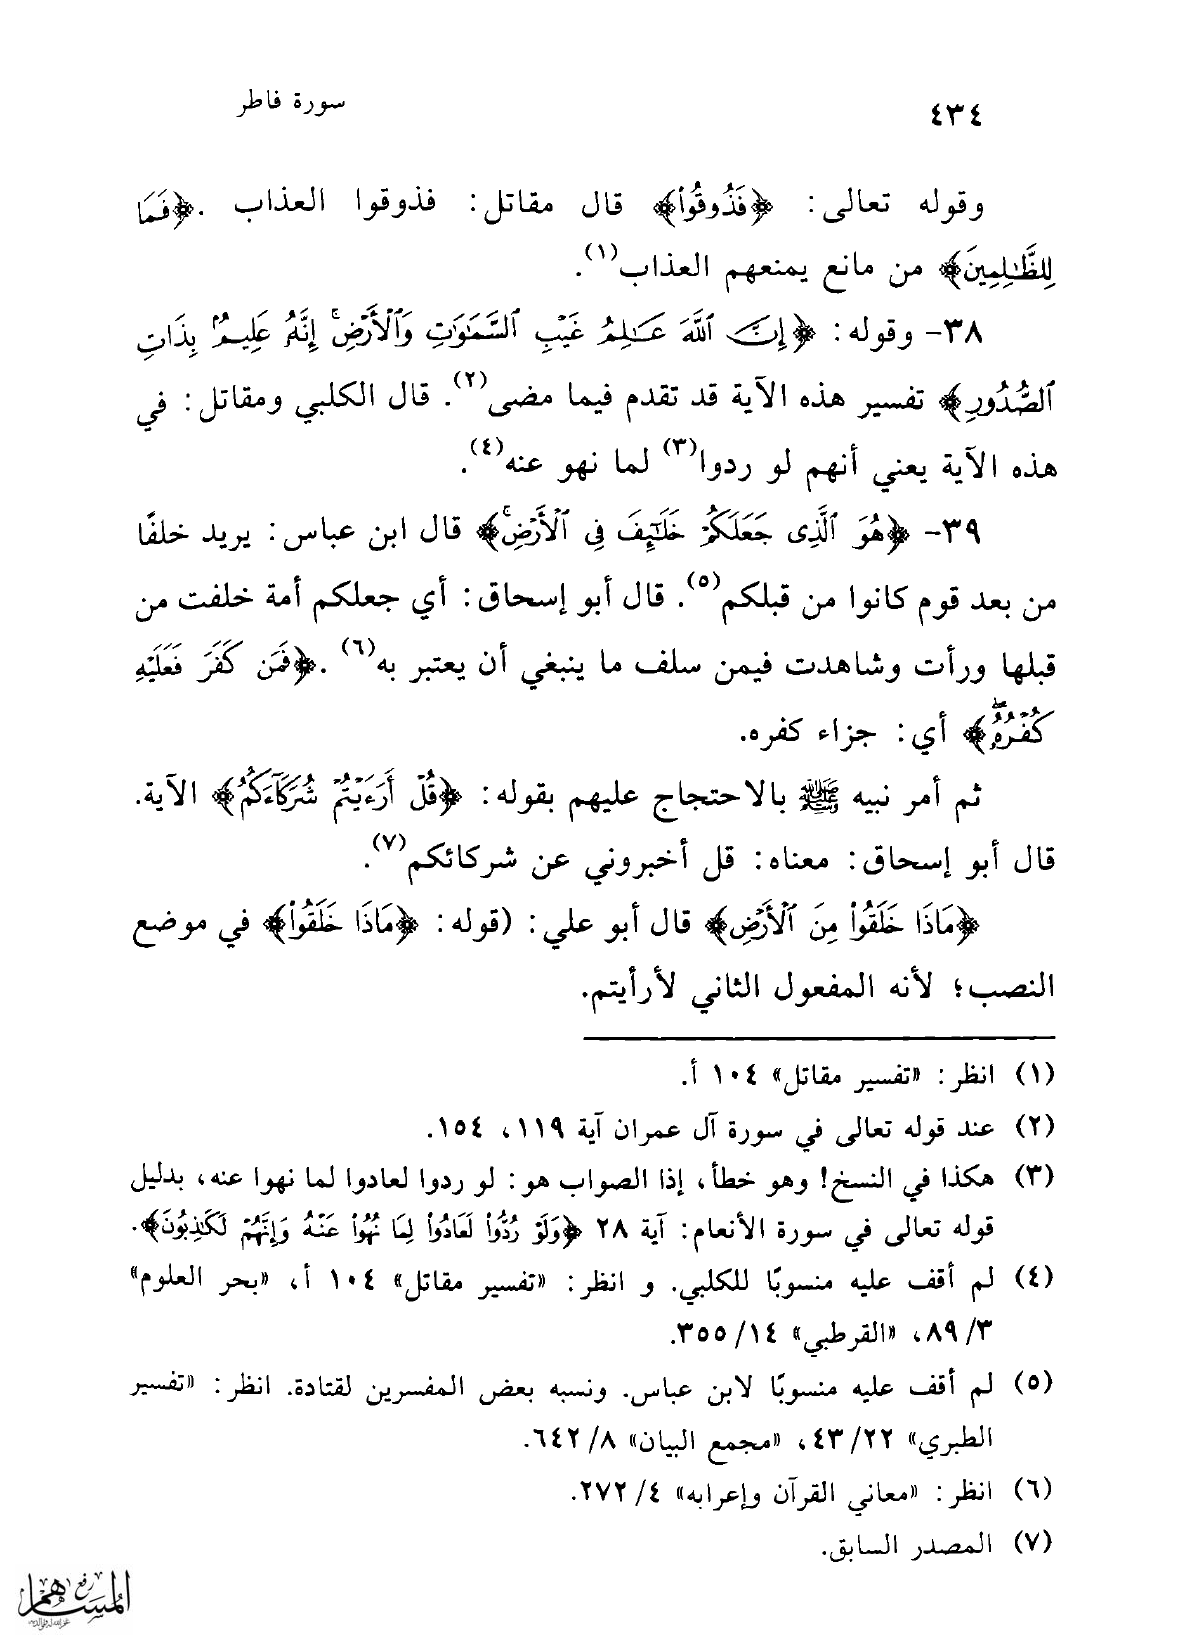 ٤٣٤
سورة فاطر
وقوله تعالى: ﴿فَذُوقُوا۟﴾ قال مقاتل: فذوقوا العذاب .﴿فَمَا
لِلظَّٰلِمِينَ﴾ من مانع يمنعهم العذاب(١).
٣٨- وقوله: ﴿إِنَّ ٱللَّهَ عَٰلِمُ غَيْبِ ٱلسَّمَٰوَٰتِ وَٱلْأَرْضِ ۚ إِنَّهُۥ عَلِيمٌۢ بِذَاتِ
ٱلصُّدُورِ﴾ تفسير هذه الآية قد تقدم فيما مضى(٢). قال الكلبي ومقاتل: في
هذه الآية يعني أنهم لو ردوا(٣) لما نهو عنه(٤).
٣٩- ﴿هُوَ ٱلَّذِى جَعَلَكُمْ خَلَٰٓئِفَ فِى ٱلْأَرْضِ ۚ﴾ قال ابن عباس: يريد خلفًا
من بعد قوم كانوا من قبلكم(٥). قال أبو إسحاق: أي جعلكم أمة خلفت من
قبلها ورأت وشاهدت فيمن سلف ما ينبغي أن يعتبر به(٦) .﴿فَمَن كَفَرَ فَعَلَيْهِ
كُفْرُهُۥ ۖ﴾ أي: جزاء كفره.
ثم أمر نبيه ﷺ بالاحتجاج عليهم بقوله: ﴿قُلْ أَرَءَيْتُمْ شُرَكَآءَكُمُ﴾ الآية.
قال أبو إسحاق: معناه: قل أخبروني عن شركائكم(٧).
﴿مَاذَا خَلَقُوا۟ مِنَ ٱلْأَرْضِ﴾ قال أبو علي: (قوله: ﴿مَاذَا خَلَقُوا۟﴾ في موضع
النصب؛ لأنه المفعول الثاني لأرأيتم.
(١) انظر: «تفسير مقاتل» ١٠٤ أ.
(٢) عند قوله تعالى في سورة آل عمران آية ١١٩، ١٥٤.
(٣) هكذا في النسخ! وهو خطأ، إذا الصواب هو: لو ردوا لعادوا لما نهوا عنه، بدليل
قوله تعالى في سورة الأنعام: آية ٢٨ ﴿وَلَوْ رُدُّوا۟ لَعَادُوا۟ لِمَا نُهُوا۟ عَنْهُ وَإِنَّهُمْ لَكَٰذِبُونَ﴾.
(٤) لم أقف عليه منسوبًا للكلبي. و انظر: «تفسير مقاتل» ١٠٤ أ، «بحر العلوم»
٨٩/٣، «القرطبي» ٣٥٥/١٤.
(٥) لم أقف عليه منسوبًا لابن عباس. ونسبه بعض المفسرين لقتادة. انظر: «تفسير
الطبري» ٤٣/٢٢، «مجمع البيان» ٦٤٢/٨.
(٦) انظر: «معاني القرآن وإعرابه» ٢٧٢/٤.
(٧) المصدر السابق.
رفع
المساهم